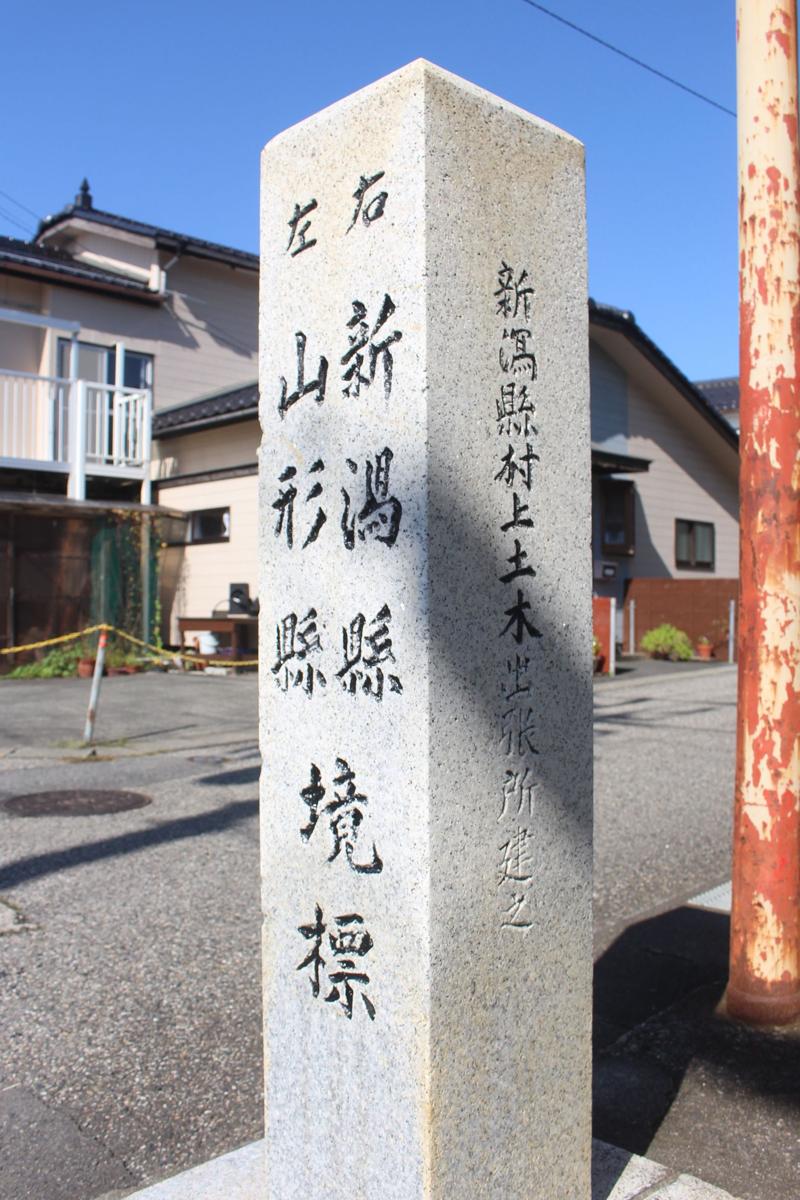 右 新潟縣
左 山形縣
境標
新潟縣村上土木出張所建之